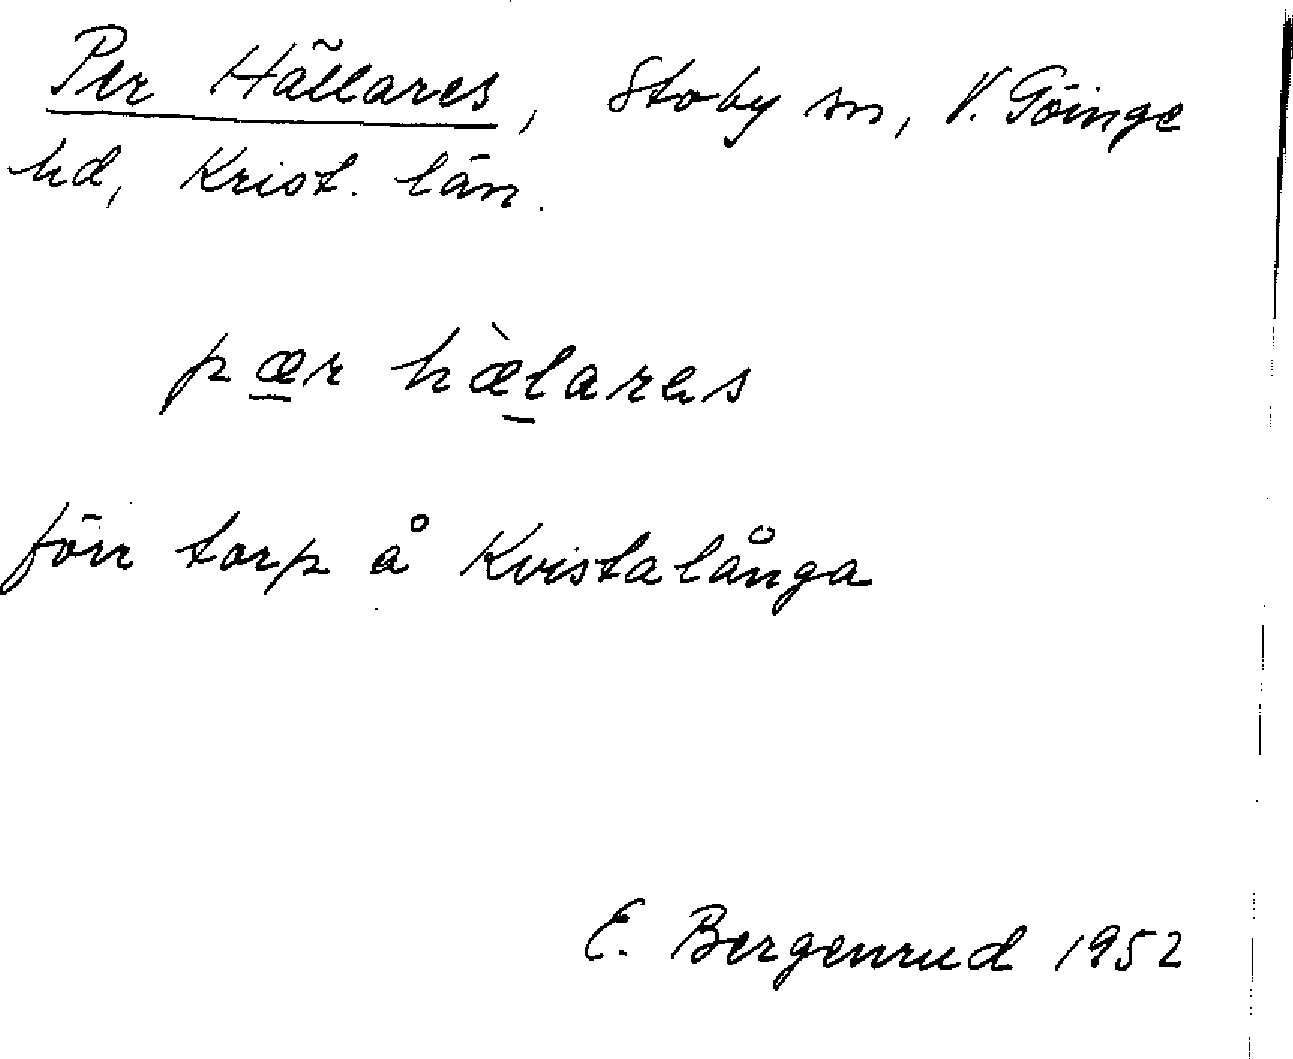 Per Hällares, Stoby sn, V. Göinge
hd, Krist. län.
pær hæ̀lares
förr torp å Kvistalånga
E. Bergenrud 1952